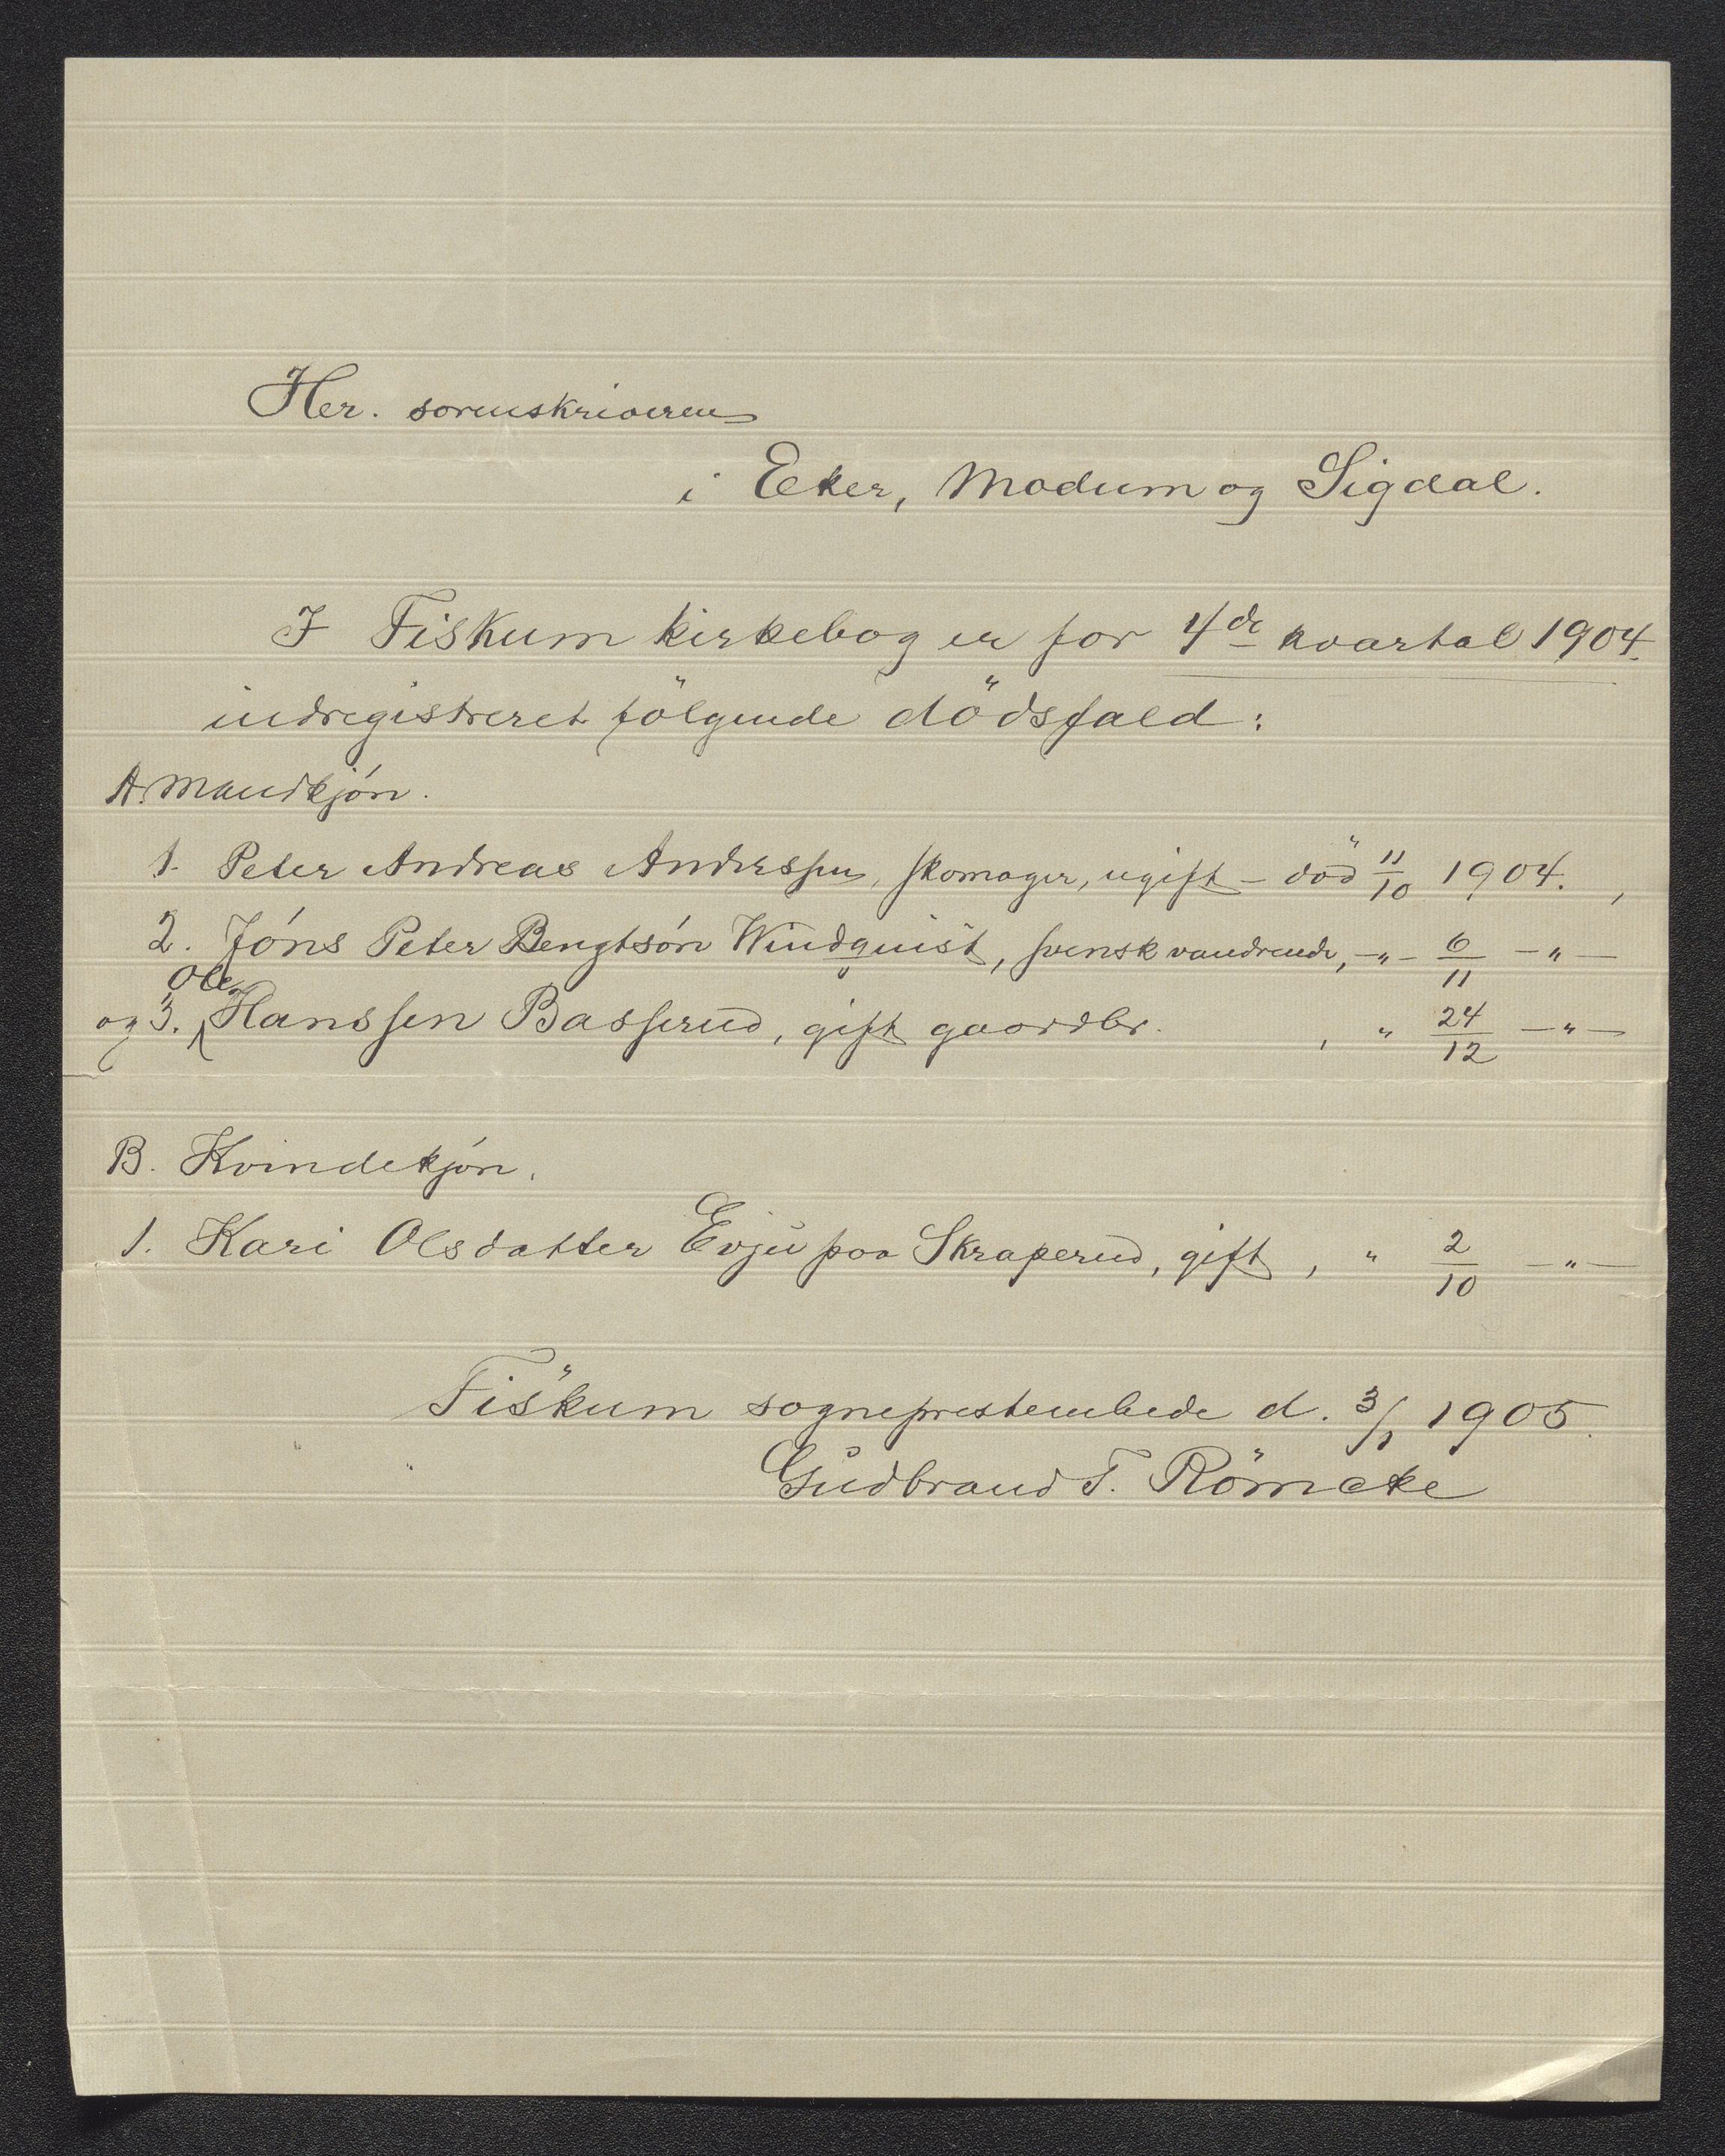 Her. sorenskriveren
i Eker, Modum og Sigdal.
I Fiskum kirkebog er for 4de kvartal 1904.
indregistreret fölgende dödsfald:
A. Mandkjón.
1. Peter Andreas Anderssen, skomager, ugift - död 11/10 1904. ,
2. Jóns Peter Bengtsón Windquist, svensk vandrende, -"- 6/11 -"-
Ole
og 3. Hanssen Basserud, gift gaardbr. , " 24/12 -"-
B. Kvindekjón.
1. Kari Olsdatter Evju paa Skraperud, gift , " 2/10 -"-
Fiskum sogneprestembede d. 3/1 1905.
Gudbrand T. Römcke